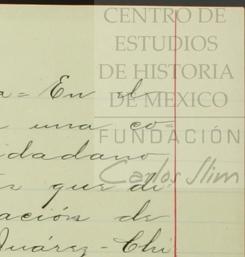 CENTRO DE
ESTUDIOS
DE HISTORIA
DE MEXICO
FUNDACIÓN
Carlos Slim
a = En el
una co=
dadano
que di
ación de
Juárez - Chi